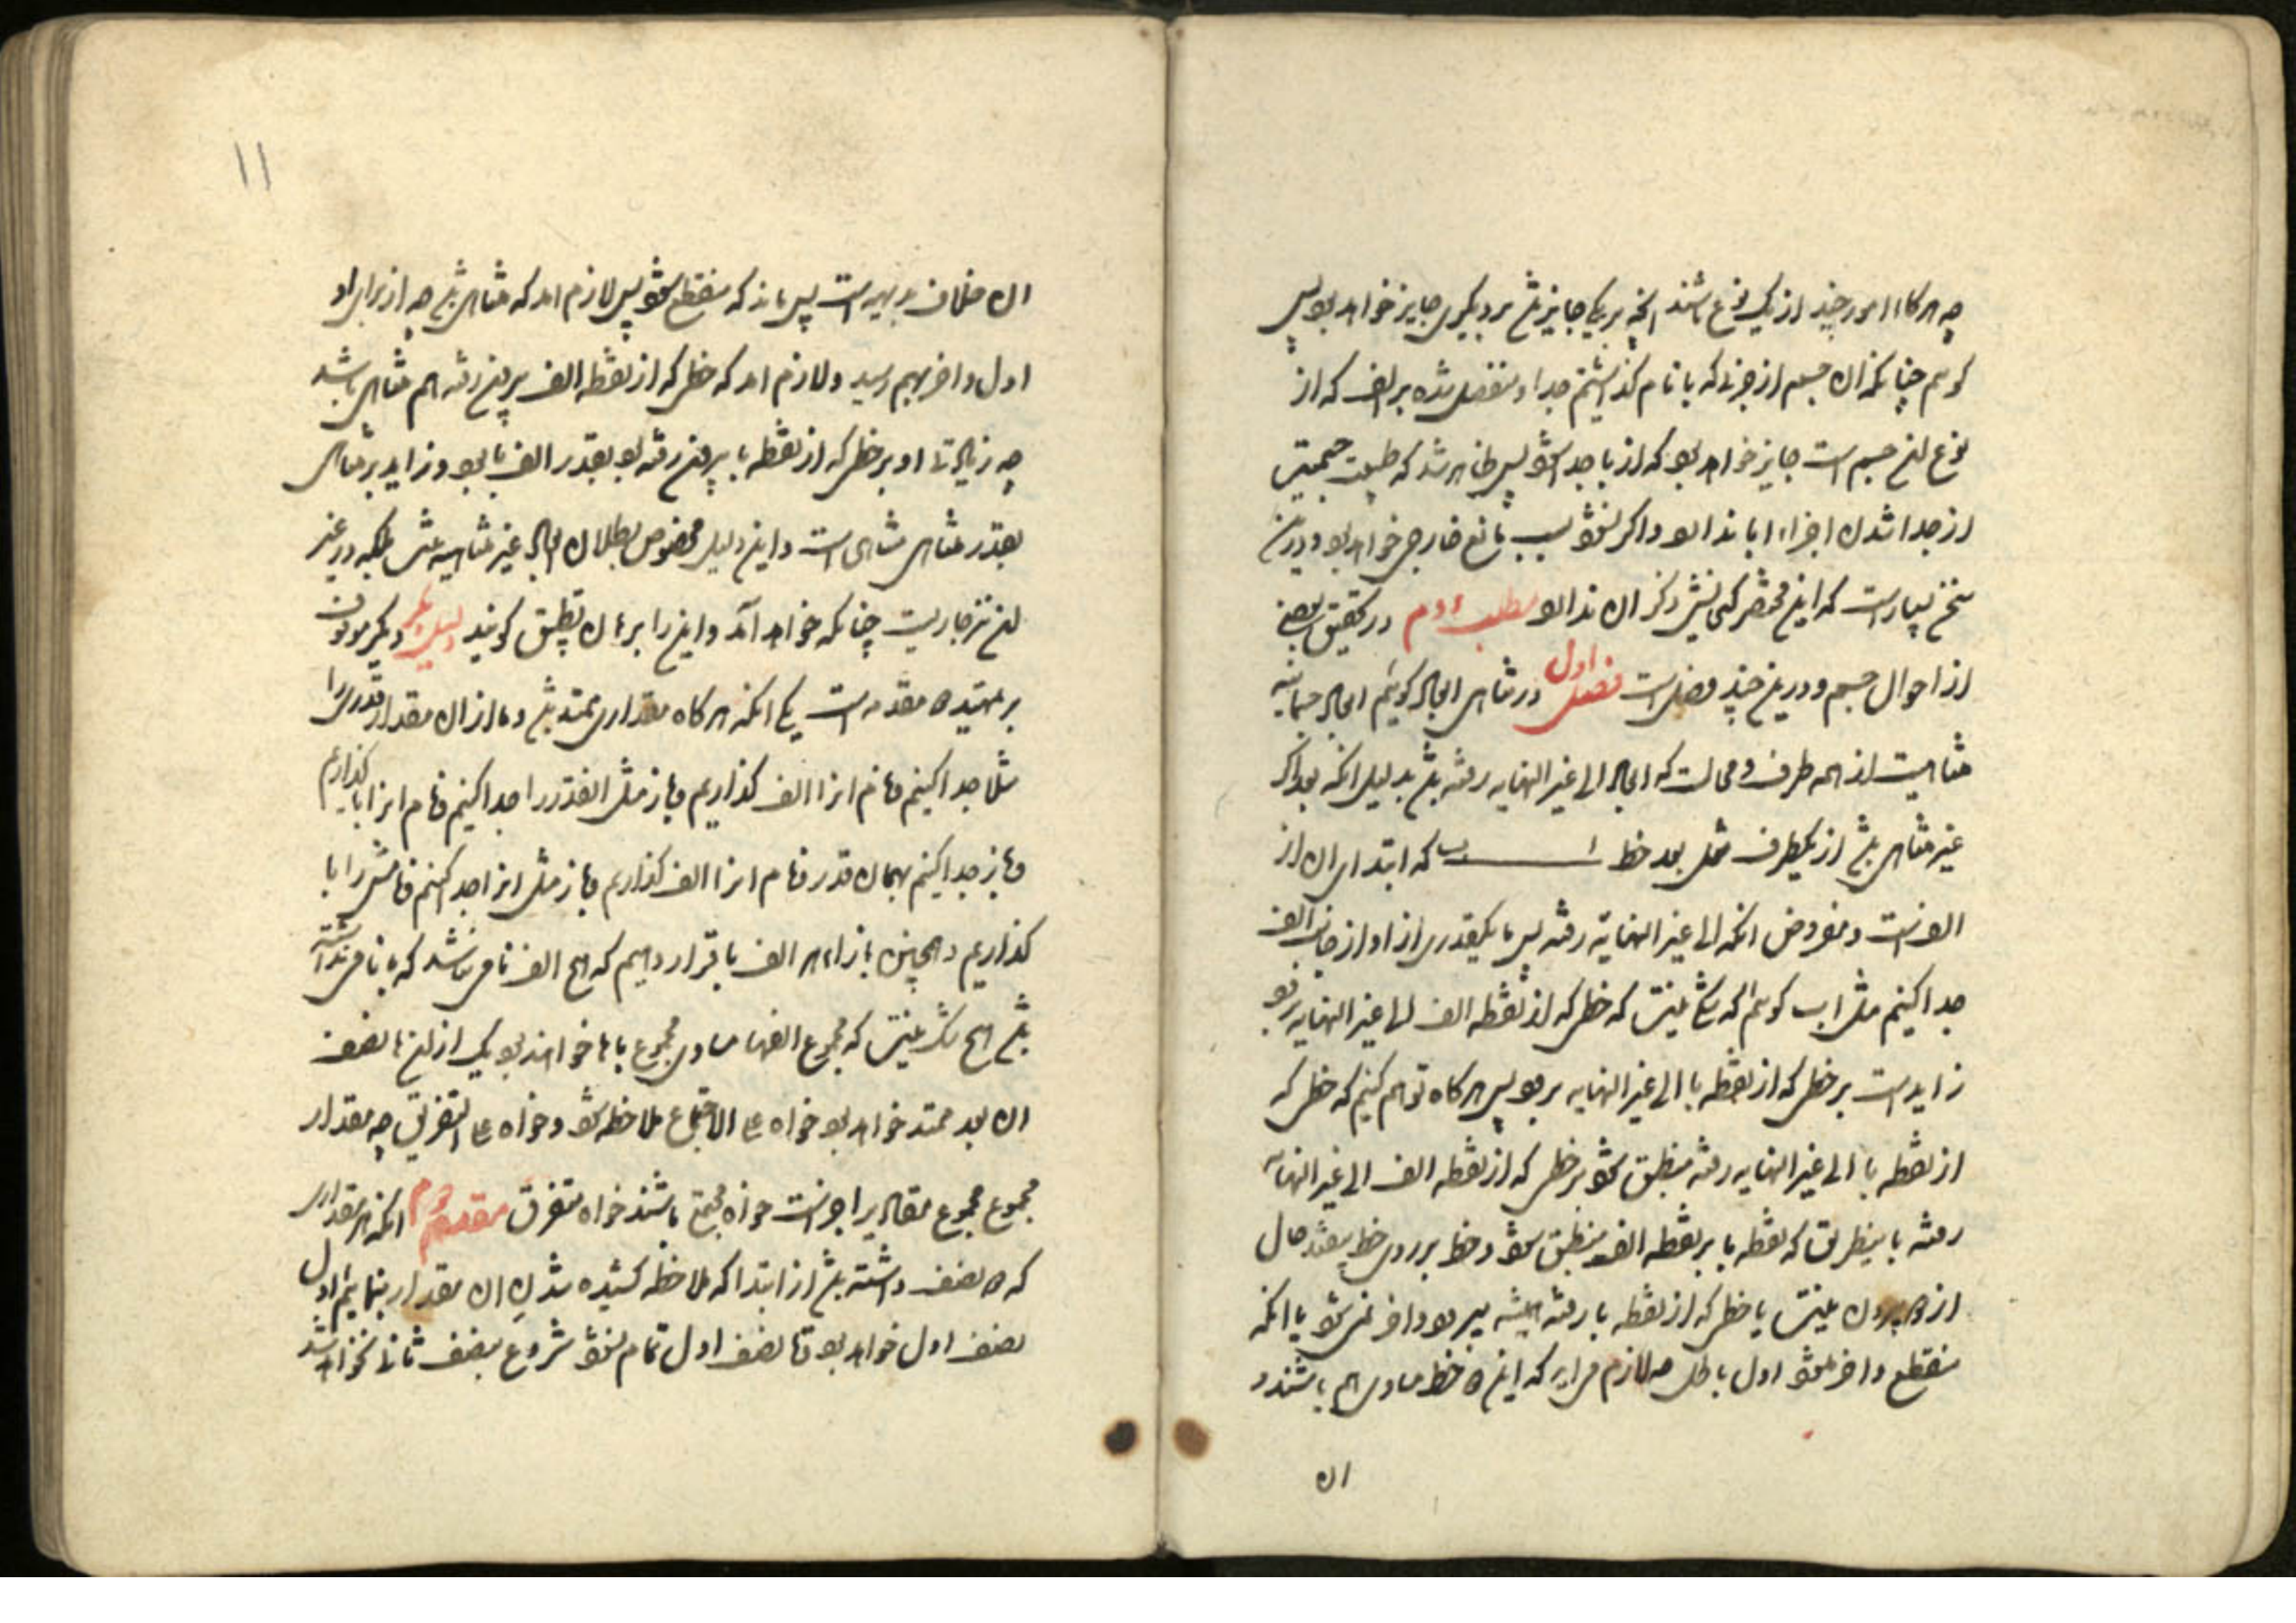 چه هرگاه امور چند از یک نوع باشند آنچه بر یکی جایز باشد بر دیگری جایز خواهد بود پس
گوئیم چنانکه آن جسم از جزئی که با نام گذاشتیم جدا و منفصل شده بر الف که از
نوع این جسم است جایز خواهد بود که از با جدا شود پس ظاهر شد که طبیعت جسمیت
از جدا شدن اجزاء ابا ندارد و اگر نشود بسبب مانع خارجی خواهد بود و درین
سخن بسیار است که این مختصر گنجایش ذکر آن ندارد مطلب دوم در تحقیق بعضی
از احوال جسم و درین چند فصل است فصل اول در تناهی ابعاد گوئیم ابعاد جسمانیه
متناهیست از همه طرف و محالست که ابعاد الی غیر النهایه رفته باشد بدلیل آنکه بعد اگر
غیر متناهی باشد از یکطرف مثل بعد خط ا ب که ابتدای آن از
الف است و مفروض آنکه الی غیر النهایة رفته پس ما یکقدری از او از جانب الف
جدا کنیم مثل اب گوئیم که شک نیست که خطی که از نقطه الف الی غیر النهایه برود
زاید است بر خطی که از نقطه با الی غیر النهایه برود پس هرگاه توهم کنیم که خطی که
از نقطه با الی غیر النهایه رفته منطبق شود بر خطی که از نقطه الف الی غیر النهایه
رفته باینطریق که نقطه با بر نقطه الف منطبق شود و خط بر روی خط بیفتد حال
از دو بیرون نیست یا خطی که از نقطه با رفته همیشه میرود و آخر نمی‌شود یا آنکه
منقطع و آخر میشود اول باطل چه لازم می‌آید که این دو خط مساوی هم باشند و
ان
۱۱
آن خلاف بدیهیست پس ماند که منقطع شود پس لازم آمد که متناهی باشد چه از برای او
اول و آخر بهم رسید و لازم آمد که خطی که از نقطه الف بیرون رفته هم متناهی باشد
چه زیادتی او بر خطی که از نقطه با بیرون رفته بود بقدر الف با بود و زاید بر متناهی
بقدر متناهی متناهی است و این دلیل مخصوص بطلان ابعاد غیر متناهیه نیست بلکه در غیر
این نیز جاریست چنانکه خواهد آمد و این را برهان تطبیق گویند دلیل دیگر موقوف
بر تمهید دو مقدمه است یکی آنکه هرگاه مقداری ممتد باشد و ما از آن مقدار قدری را
مثلا جدا کنیم و نام آنرا الف گذاریم و باز مثل آنقدر را جدا کنیم و نام آنرا با گذاریم
و باز جدا کنیم بهمان قدر و نام آنرا الف گذاریم و باز مثل آنرا جدا کنیم و نامش را با
گذاریم و همچنین بازاء هر الف با قرار دهیم که هیچ الف نامی نباشد که با نامی نداشته
باشد هیچ شک نیست که مجموع الفها مساوی مجموع باها خواهند بود و یک از اینها نصف
آن بعد ممتد خواهد بود خواه علی الاجتماع ملاحظه شود و خواه علی التفریق چه مقدار
مجموع مجموع مقادیر اجزاست خواه مجتمع باشند خواه متفرق مقدمه دوم آنکه هر مقداری
که دو نصف داشته باشد از ابتدا که ملاحظه کشیده شدن آن مقدار بنمائیم اول
نصف اول خواهد بود و تا نصف اول تمام نشود شروع بنصف ثانی نخواهد شد